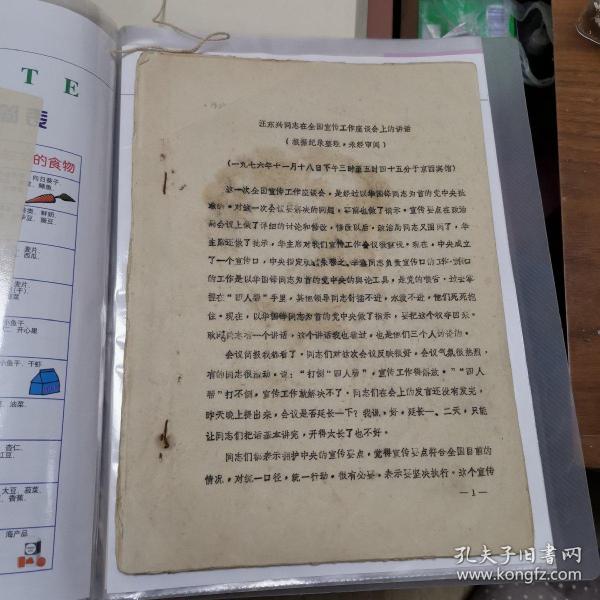 T E
的食物
汪东兴同志在全国宣传工作座谈会上的讲话
（根据纪录整理，未经审阅）
（一九七六年十一月十八日下午三时至五时四十五分于京西宾馆）
这一次全国宣传工作座谈会，是经过以华国锋同志为首的党中央批
准的。对这一次会议要解决的问题，要前也做了指示。宣传要点在政治
局会议上做了详细的讨论和修改，修改以后，政治局同志又圈阅了，华
主席还做了批示，华主席对我们宣传工作会议很重视。现在，中央成立
了一个宣传口，中央指定耿飚、朱穆之、华楠同志负责宣传口的工作，
的工作是以华国锋同志为首的党中央的舆论工具，是党的喉舌。过去掌
握在“四人帮”手里，其他领导同志针插不进，水泼不进，他们死死抱
住。现在，以华国锋同志为首的党中央做了指示，要把这个权夺回来。
耿飚同志有一个讲话，这个讲话我也看过，也是他们三个人讨论的。
会议简报我都看了。同志们对这次会议反映很好，会议气氛很热烈，
有的同志很激动，说：“打倒‘四人帮’，宣传工作得解放。”“四人
帮”打不倒，宣传工作就解决不了。同志们在会上的发言还没有发完，
昨天晚上提出来，会议是否延长一下？我说，好，延长一、二天，只能
让同志们把话基本讲完，开得太长了也不好。
同志们都表示拥护中央的宣传要点，觉得宣传要点符合全国目前的
情况，对统一口径，统一行动，很有必要，表示要坚决执行。这个宣传
—1—
海产品
孔夫子旧书网
www.kongfz.com